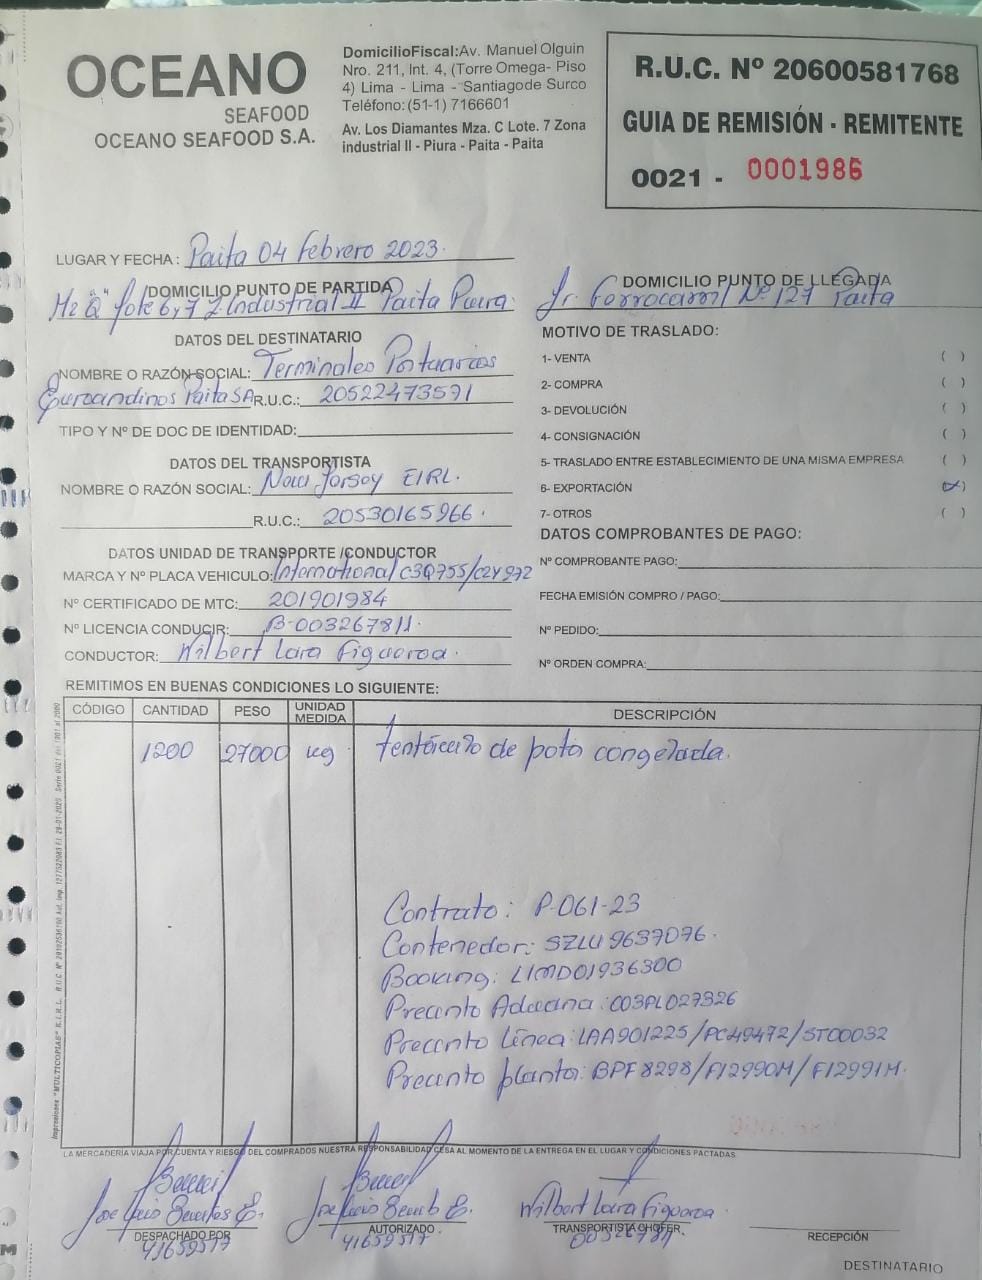 OCEANO
SEAFOOD
OCEANO SEAFOOD S.A.
DomicilioFiscal:Av. Manuel Olguin
Nro. 211, Int. 4, (Torre Omega- Piso
4) Lima - Lima - Santiagode Surco
Teléfono:(51-1) 7166601
Av. Los Diamantes Mza. C Lote. 7 Zona
industrial II - Piura - Paita - Paita
R.U.C. Nº 20600581768
GUIA DE REMISIÓN - REMITENTE
0021 - 0001986
LUGAR Y FECHA : Paita 04 febrero 2023.
DOMICILIO PUNTO DE PARTIDA
Mz "Q" lote 6,7 Z. Industrial II Paita Piura.
DOMICILIO PUNTO DE LLEGADA
Jr. Ferrocarril Nº 127 Paita
DATOS DEL DESTINATARIO
NOMBRE O RAZÓN SOCIAL: Terminales Portuarios
Euroandinos Paita SA R.U.C.: 20522473571
TIPO Y Nº DE DOC DE IDENTIDAD:
DATOS DEL TRANSPORTISTA
NOMBRE O RAZÓN SOCIAL: New Jersey EIRL.
R.U.C.: 20530165966.
DATOS UNIDAD DE TRANSPORTE /CONDUCTOR
MARCA Y Nº PLACA VEHICULO: International C3Q755/C2Y972
Nº CERTIFICADO DE MTC: 201901984
Nº LICENCIA CONDUCIR: B-003267811.
CONDUCTOR: Wilbert Lara Figueroa.
MOTIVO DE TRASLADO:
1- VENTA ( )
2- COMPRA ( )
3- DEVOLUCIÓN ( )
4- CONSIGNACIÓN ( )
5- TRASLADO ENTRE ESTABLECIMIENTO DE UNA MISMA EMPRESA ( )
6- EXPORTACIÓN (X)
7- OTROS ( )
DATOS COMPROBANTES DE PAGO:
Nº COMPROBANTE PAGO:
FECHA EMISIÓN COMPRO / PAGO:
Nº PEDIDO:
Nº ORDEN COMPRA:
REMITIMOS EN BUENAS CONDICIONES LO SIGUIENTE:
CÓDIGO CANTIDAD PESO UNIDAD MEDIDA DESCRIPCIÓN
1200 27000 kg tentáculo de pota congelada.
Contrato: P-061-23
Contenedor: SZLU 9637076.
Booking: LIMD01936300
Precinto Aduana: 003PL027326
Precinto Línea: LAA901225/PC49472/ST00032
Precinto planta: BPF8298/F12990M/F12991M.
LA MERCADERÍA VIAJA POR CUENTA Y RIESGO DEL COMPRADOS NUESTRA RESPONSABILIDAD CESA AL MOMENTO DE LA ENTREGA EN EL LUGAR Y CONDICIONES PACTADAS
Jose Luis
Wilbert Lara Figueroa
DESPACHADO POR
AUTORIZADO
TRANSPORTISTA CHOFER
RECEPCIÓN
41659517
41659517
DESTINATARIO